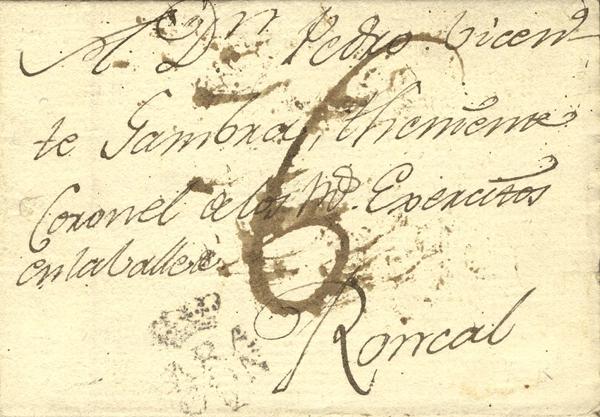 A Dn Pedro Vicen
te Gambra, theniente
Coronel de los Rs. Exercitos
en la Vallee
6
Roncal